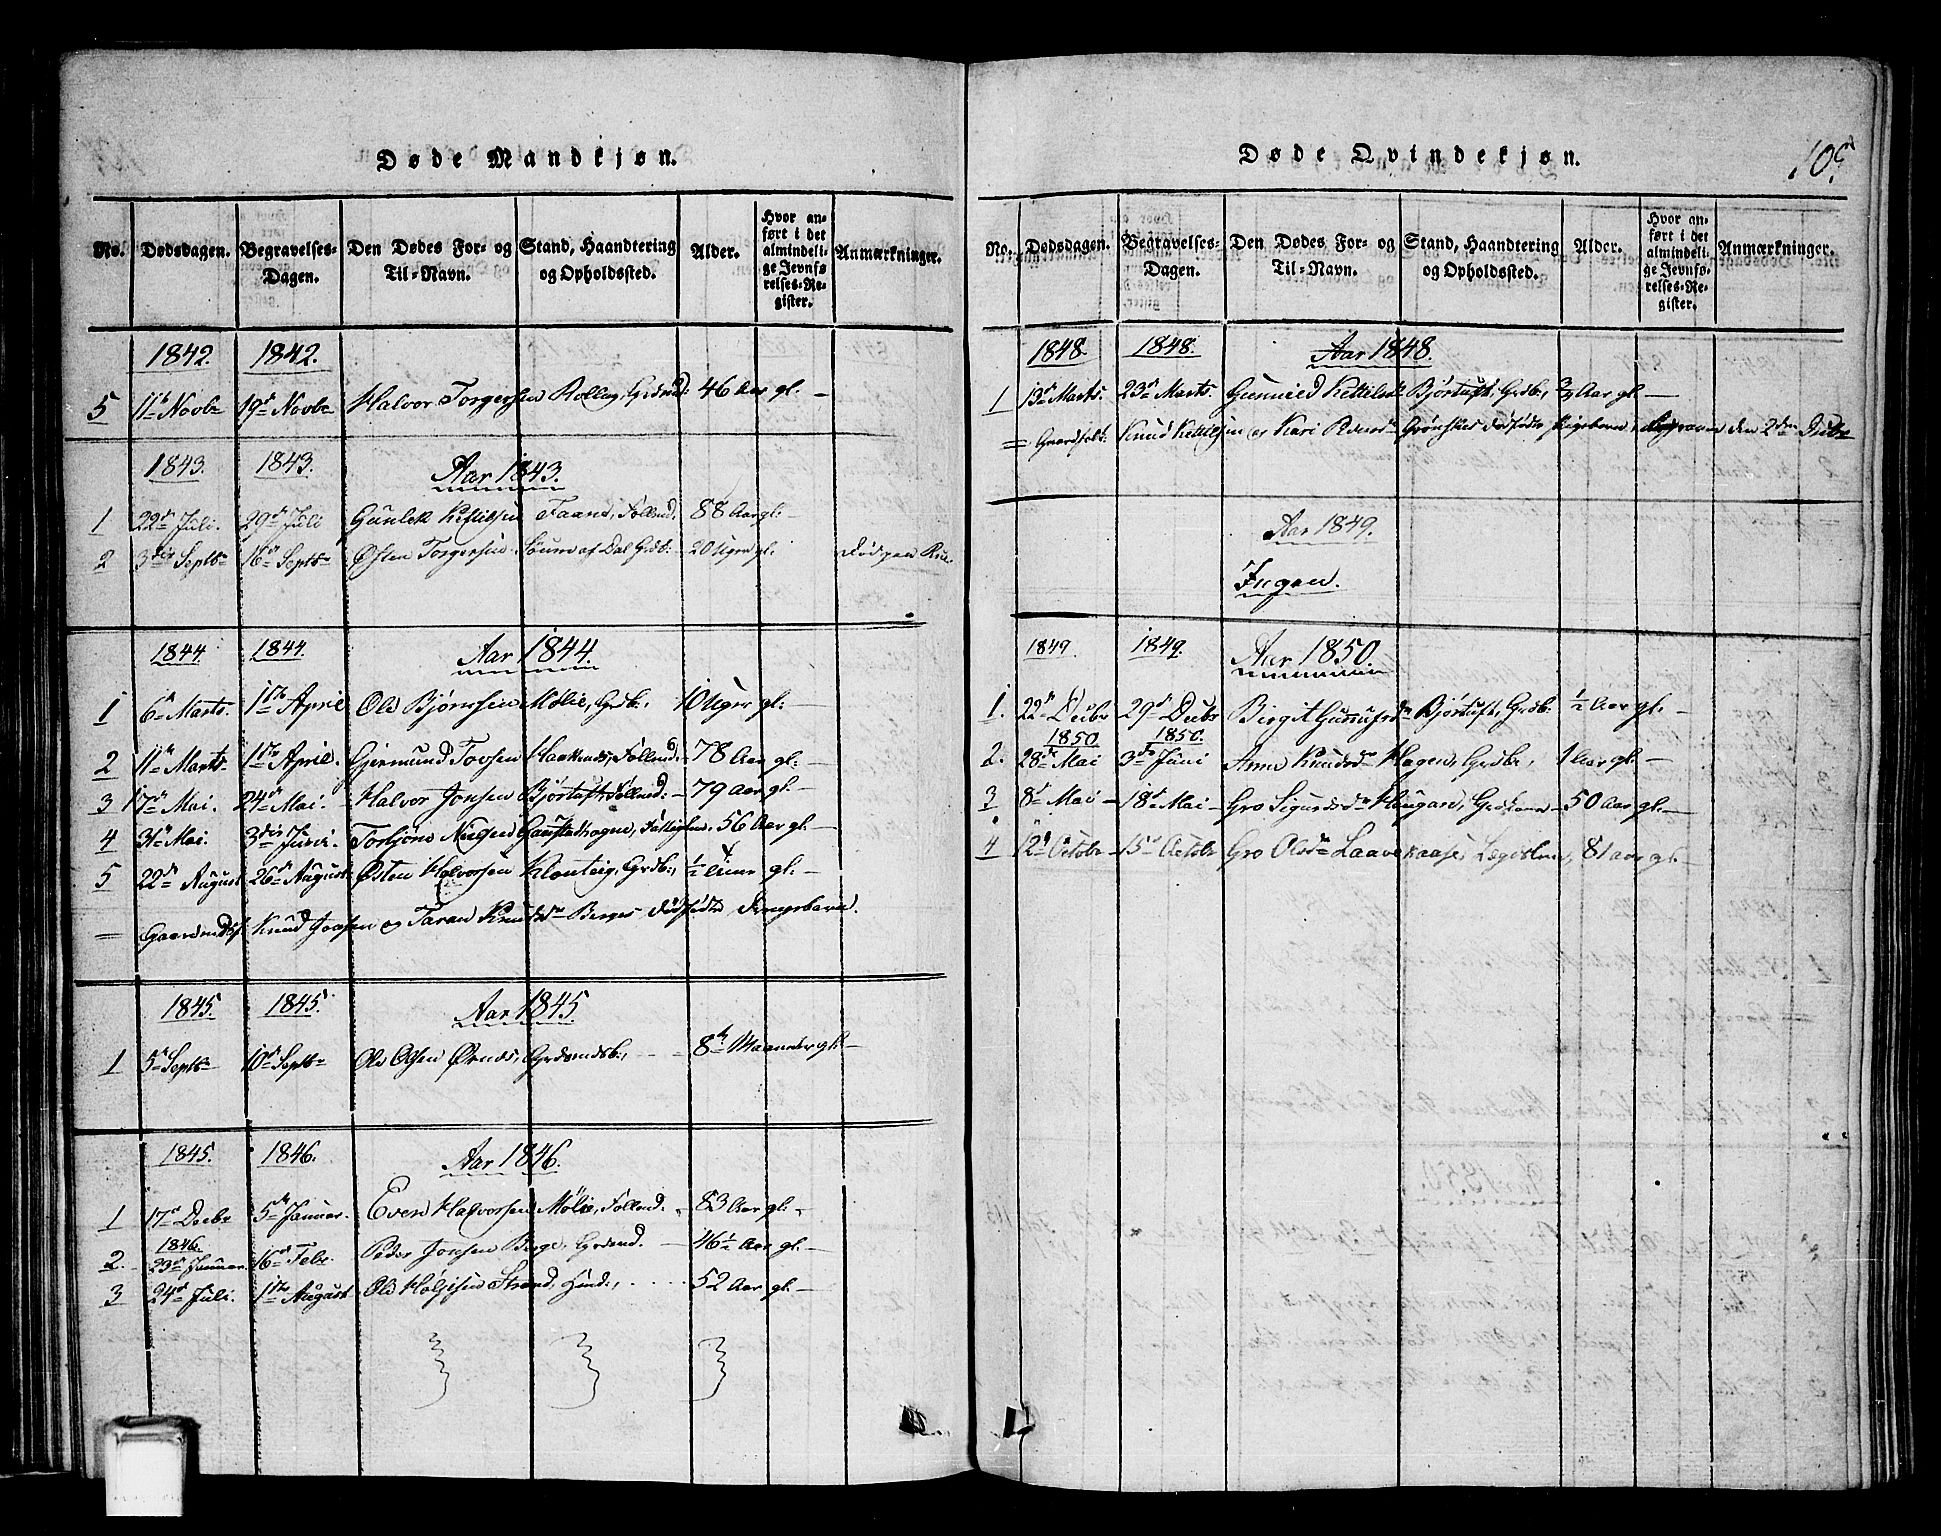 Døde Mandkjøn.
No. Dødsdagen. Begravelses-Dagen. Den Dødes For- og Til-Navn. Stand, Haandtering og Opholdssted. Alder. Hvor anført i det almindelige Jevnførelses-Register. Anmærkninger.
1842. 1842.
5 11te Novbr 19de Novbr Halvor Torgersen Rollag, Grdmd: 46 Aar gl: —
1843. 1843. Aar 1843.
1 22de Juli. 29de Juli Gunlek Kittilsen Taane, Follmd. 88 Aar gl: —
2 3die Septbr 16de Septbr Østen Torgersen af Dal Grdb: 20 Uger gl.
1844. 1844. Aar 1844.
1 6te Marts. 1ste April Ole Bjørnsen Mølie, Grdb:, 10 Uger gl: —
2 11te Marts. 1ste April. Gjermund Tovsen Haakenes, Follmd: 78 Aar gl: —
3 17de Mai. 24de Mai. Halvor Jonsen Bjørtuft, Follmd: — 79 Aar gl: —
4 31te Mai. 3die Juni. Torbjørn Gaustadhagen, 56 Aar gl: —
5 22de August 26de August Østen Halvorsen Klonteig, Grdb:, ½ Time gl: —
= Gaardmdsf. Knud Jonsen og Taran Knudsdr Berges dødfødte Drengebarn.
1845. 1845. Aar 1845
1 5te Septbr 10de Septbr Ole Olsen Ørnes, Grdmdsb:, 8te Maaneder gl: —
1845. 1846. Aar 1846.
1 17de Decbr 5te Januar. Even Halvorsen Mølie, Follmd: 83 Aar gl:
1846.
2. 23de Januar. 16de Febr. Peder Jonsen Berge, Grdmd. — 46½ Aar gl. —
3 24de Juli. 1ste August Ole Strand, 52 Aar gl: —
Døde Qvindekjøn.
105
No. Dødsdagen. Begravelses-Dagen. Den Dødes For- og Til-Navn. Stand, Haandtering og Opholdssted. Alder. Hvor anført i det almindelige Jevnførelses-Register. Anmærkninger.
1848. 1848. Aar 1848.
1 13de Marts. 23de Marts. Gunnild Kittilsdr Bjørtuft, Grdb:, Aar gl —
= Gaardfolk: Knud Kittilsen og Kari Grønskeis dødfødte Pigebarn, den 2den Decbr
Aar 1849.
Ingen.
1849. 1849. Aar 1850.
1. 22de Decbr 29de Decbr Birgit Gunnufsdr Bjørtuft, Grdb: ½ Aar gl: —
1850. 1850.
2. 28de Mai 3die Juni Anne Knudsdr Hagen, Grdbr, 1 Aar gl: —
3 8de Mai — 18de Mai — Gro Sigurdsdr Haugan, Grdkone — 50 Aar gl: —
4 12te Octobr — 15de Octobr Gro Olsdr Laavekaase, Lægdslem, 81 aar gl: —